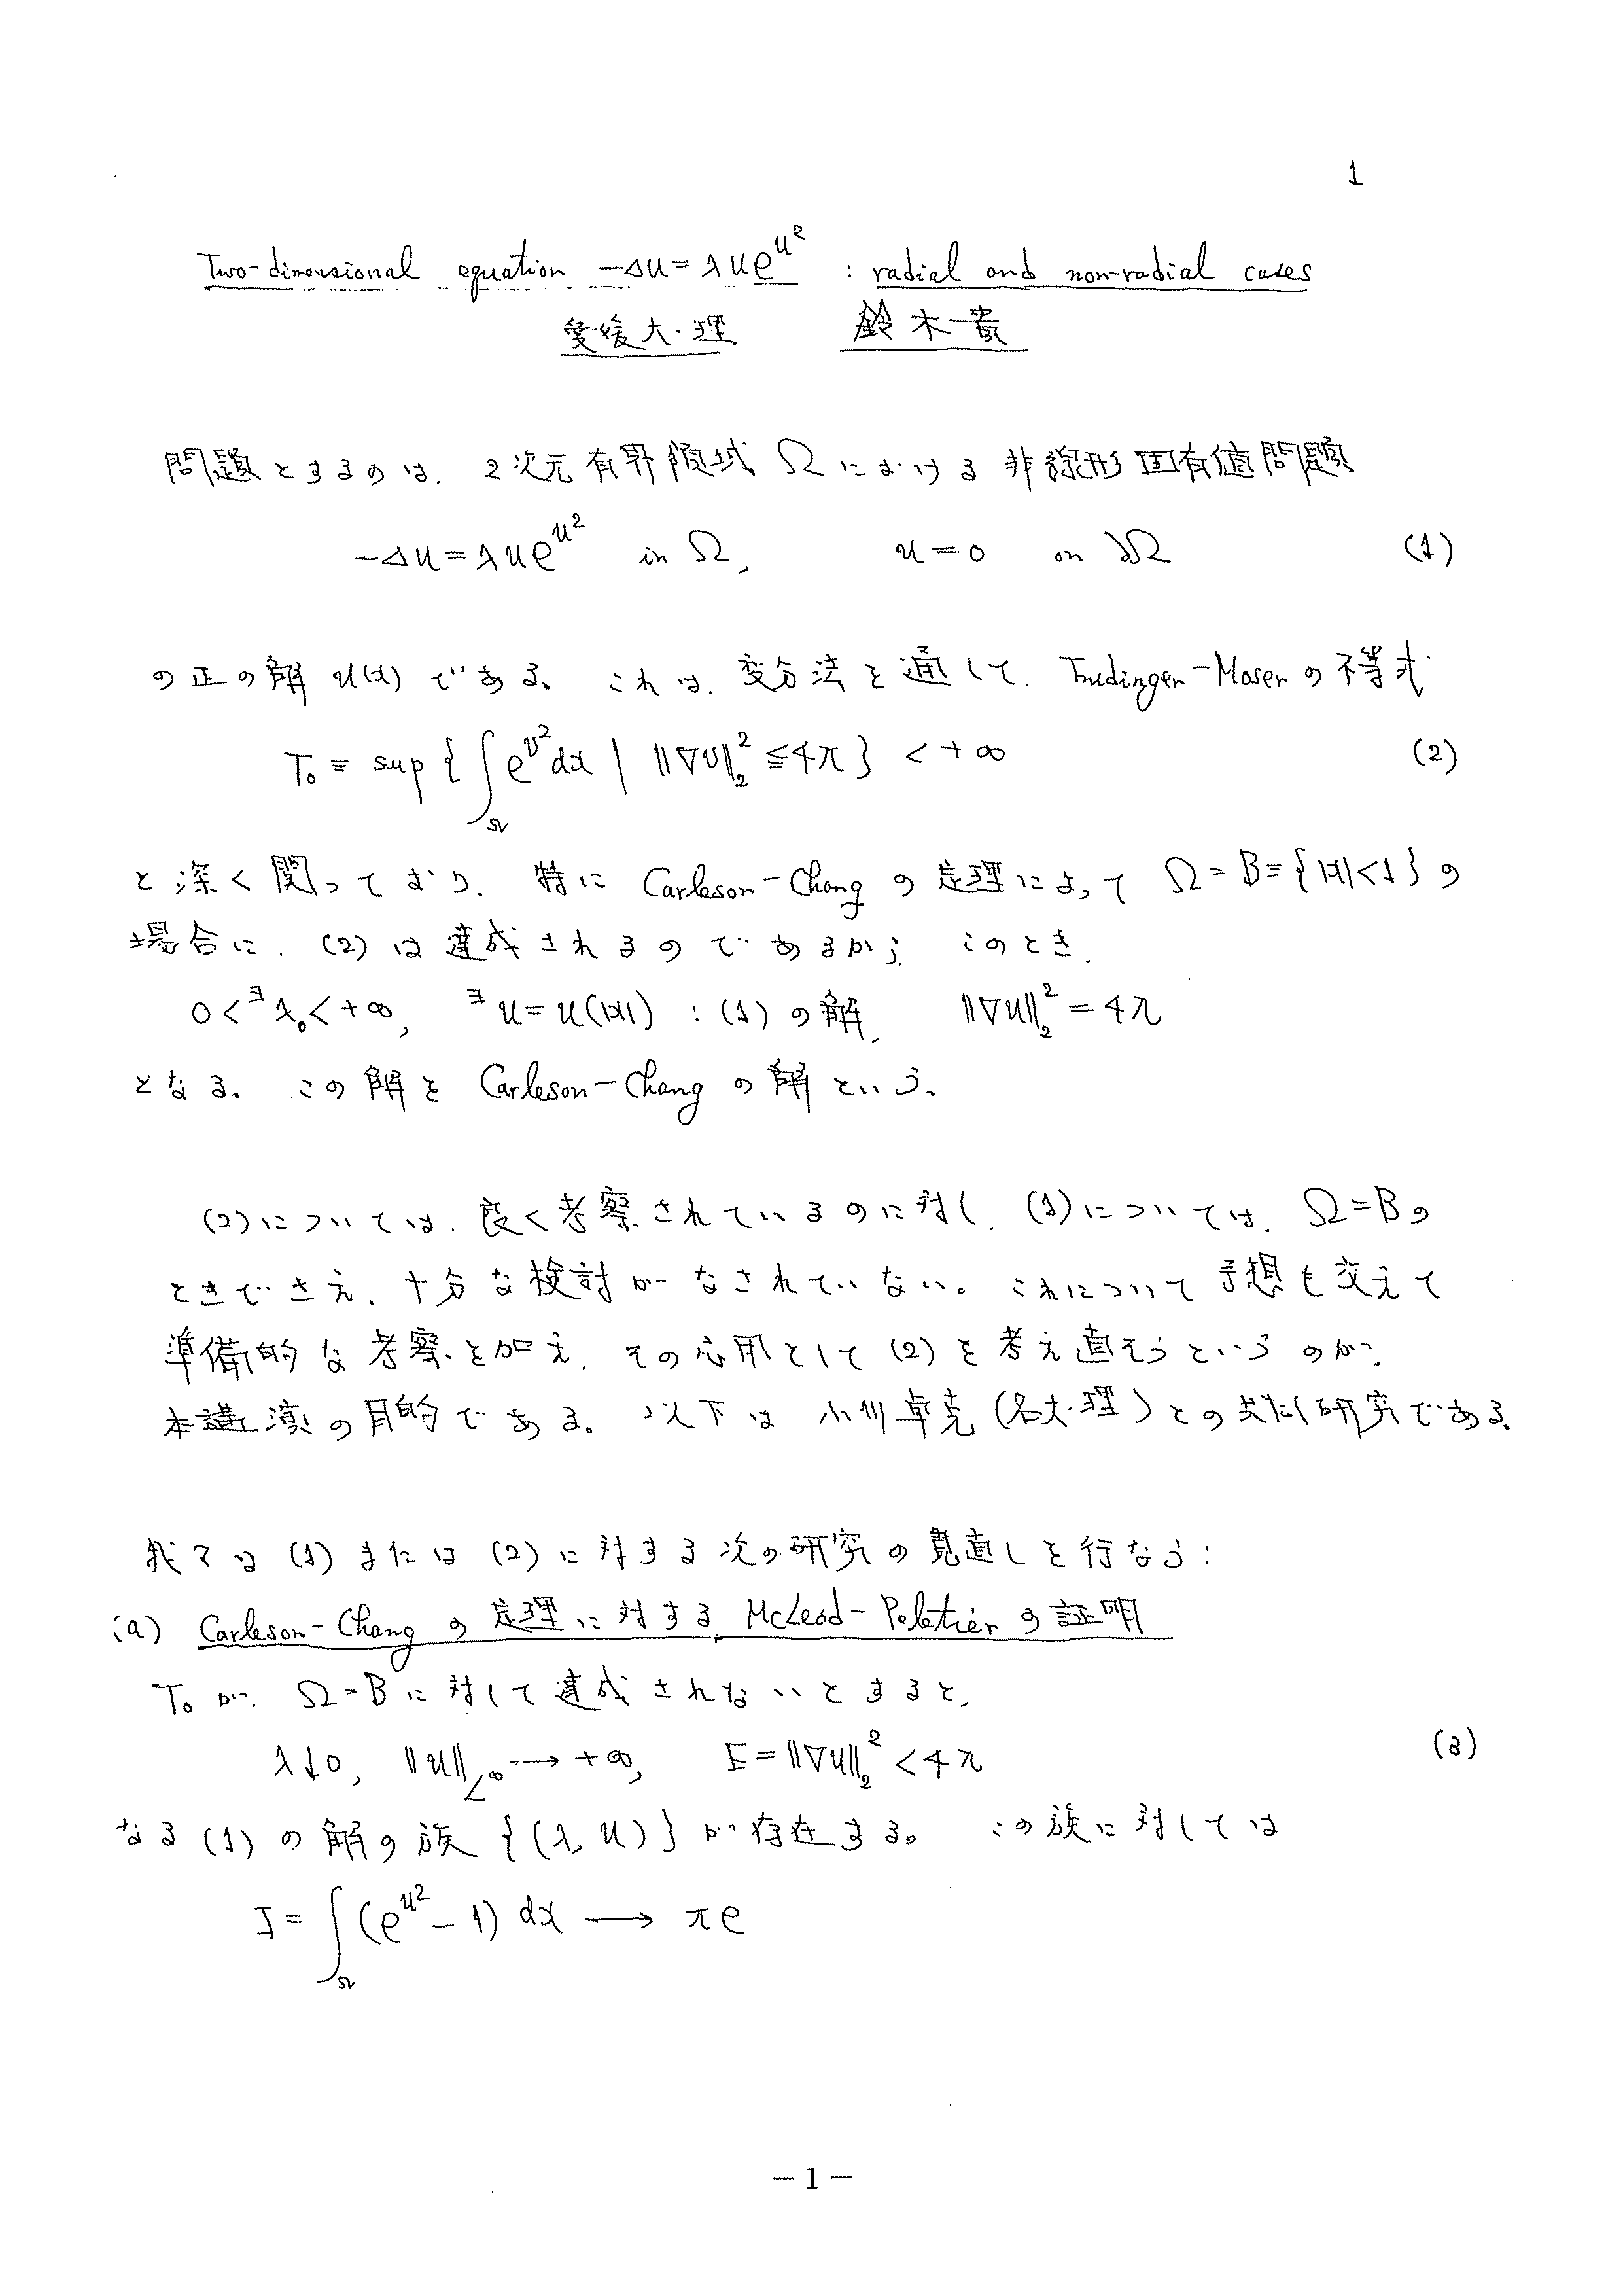 1
Two-dimensional equation -Δu=λue^{u^2} : radial and non-radial cases
愛媛大・理 鈴木貴
問題とするのは、2次元有界領域 Ω における非線形固有値問題
-Δu=λue^{u^2} in Ω, u=0 on ∂Ω (1)
の正の解 u(x) である。これは、変分法を通して、Trudinger-Moserの不等式
T₀ ≡ sup{∫_Ω e^{v^2}dx | ‖∇v‖₂² ≦ 4π} < +∞ (2)
と深く関っており、特に Carleson-Chang の定理によって Ω=B≡{|x|<1}の
場合に、(2)は達成されるのであるから、このとき、
0<∃λ₀<+∞, ∃u=u(|x|) : (1)の解, ‖∇u‖₂²=4π
となる。この解を Carleson-Chang の解という。
(2)については、良く考察されているのに対し、(1)については、Ω=Bの
ときでさえ、十分な検討がなされていない。これについて予想も交えて
準備的な考察を加え、その応用として(2)を考え直そうというのが、
本講演の目的である。以下は小川卓克(名大・理)との共同研究である。
我々は(1)または(2)に対する次の研究の見直しを行なう:
(a) Carleson-Chang の定理に対する McLeod-Peletier の証明
T₀が、Ω=Bに対して達成されないとすると、
λ↓0, ‖u‖_{L^∞}→+∞, E=‖∇u‖₂²<4π (3)
なる(1)の解の族 {(λ,u)} が存在する。この族に対しては
J=∫_Ω (e^{u^2}-1) dx → πe
-1-